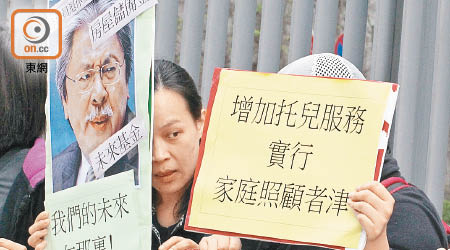 on.cc
東網
房屋儲備金
未來基金
我們的未來
增加托兒服務
實行
家庭照顧者津